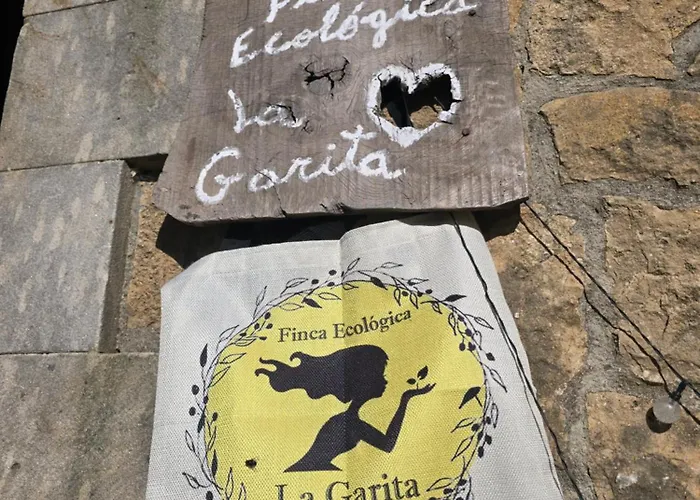 Ecológica
La
Garita
Finca Ecológica
La Garita